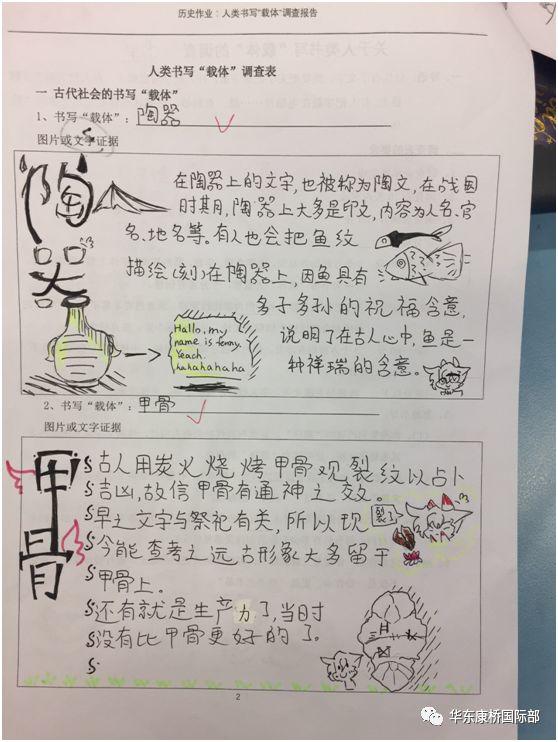 历史作业：人类书写"载体"调查报告
人类书写"载体"调查表
一 古代社会的书写"载体"
1、书写"载体"：陶器
图片或文字证据
陶器
在陶器上的文字，也被称为陶文，在战国
时其月，陶器上大多是印文，内容为人名、官
名、地名等。有人也会把鱼纹
描绘（刻）在陶器上，因鱼具有
多子多孙的祝福含意，
说明了在古人心中，鱼是一
种祥瑞的含意。
Hallo, my
name is fenny.
Yeach.
hahahahaha
2、书写"载体"：甲骨
图片或文字证据
甲骨
古人用炭火烧烤甲骨观裂纹以占卜
吉凶，故信甲骨有通神之效。
早之文字与祭祀有关，所以现
裂了
今能查考之远古形象大多留于
甲骨上。
还有就是生产力了，当时
没有比甲骨更好的了。
2
华东康桥国际部